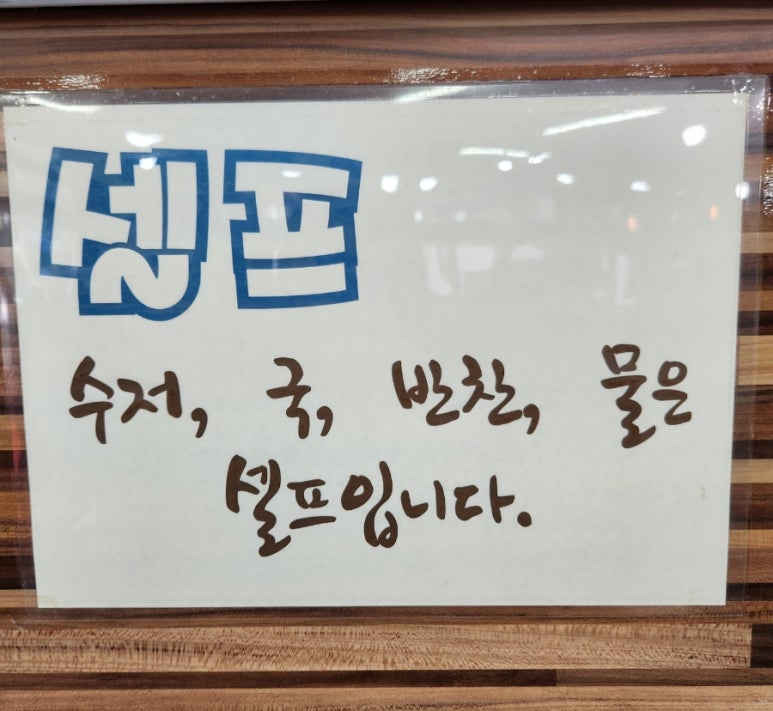 셀프
수저, 국, 반찬, 물은
셀프입니다.